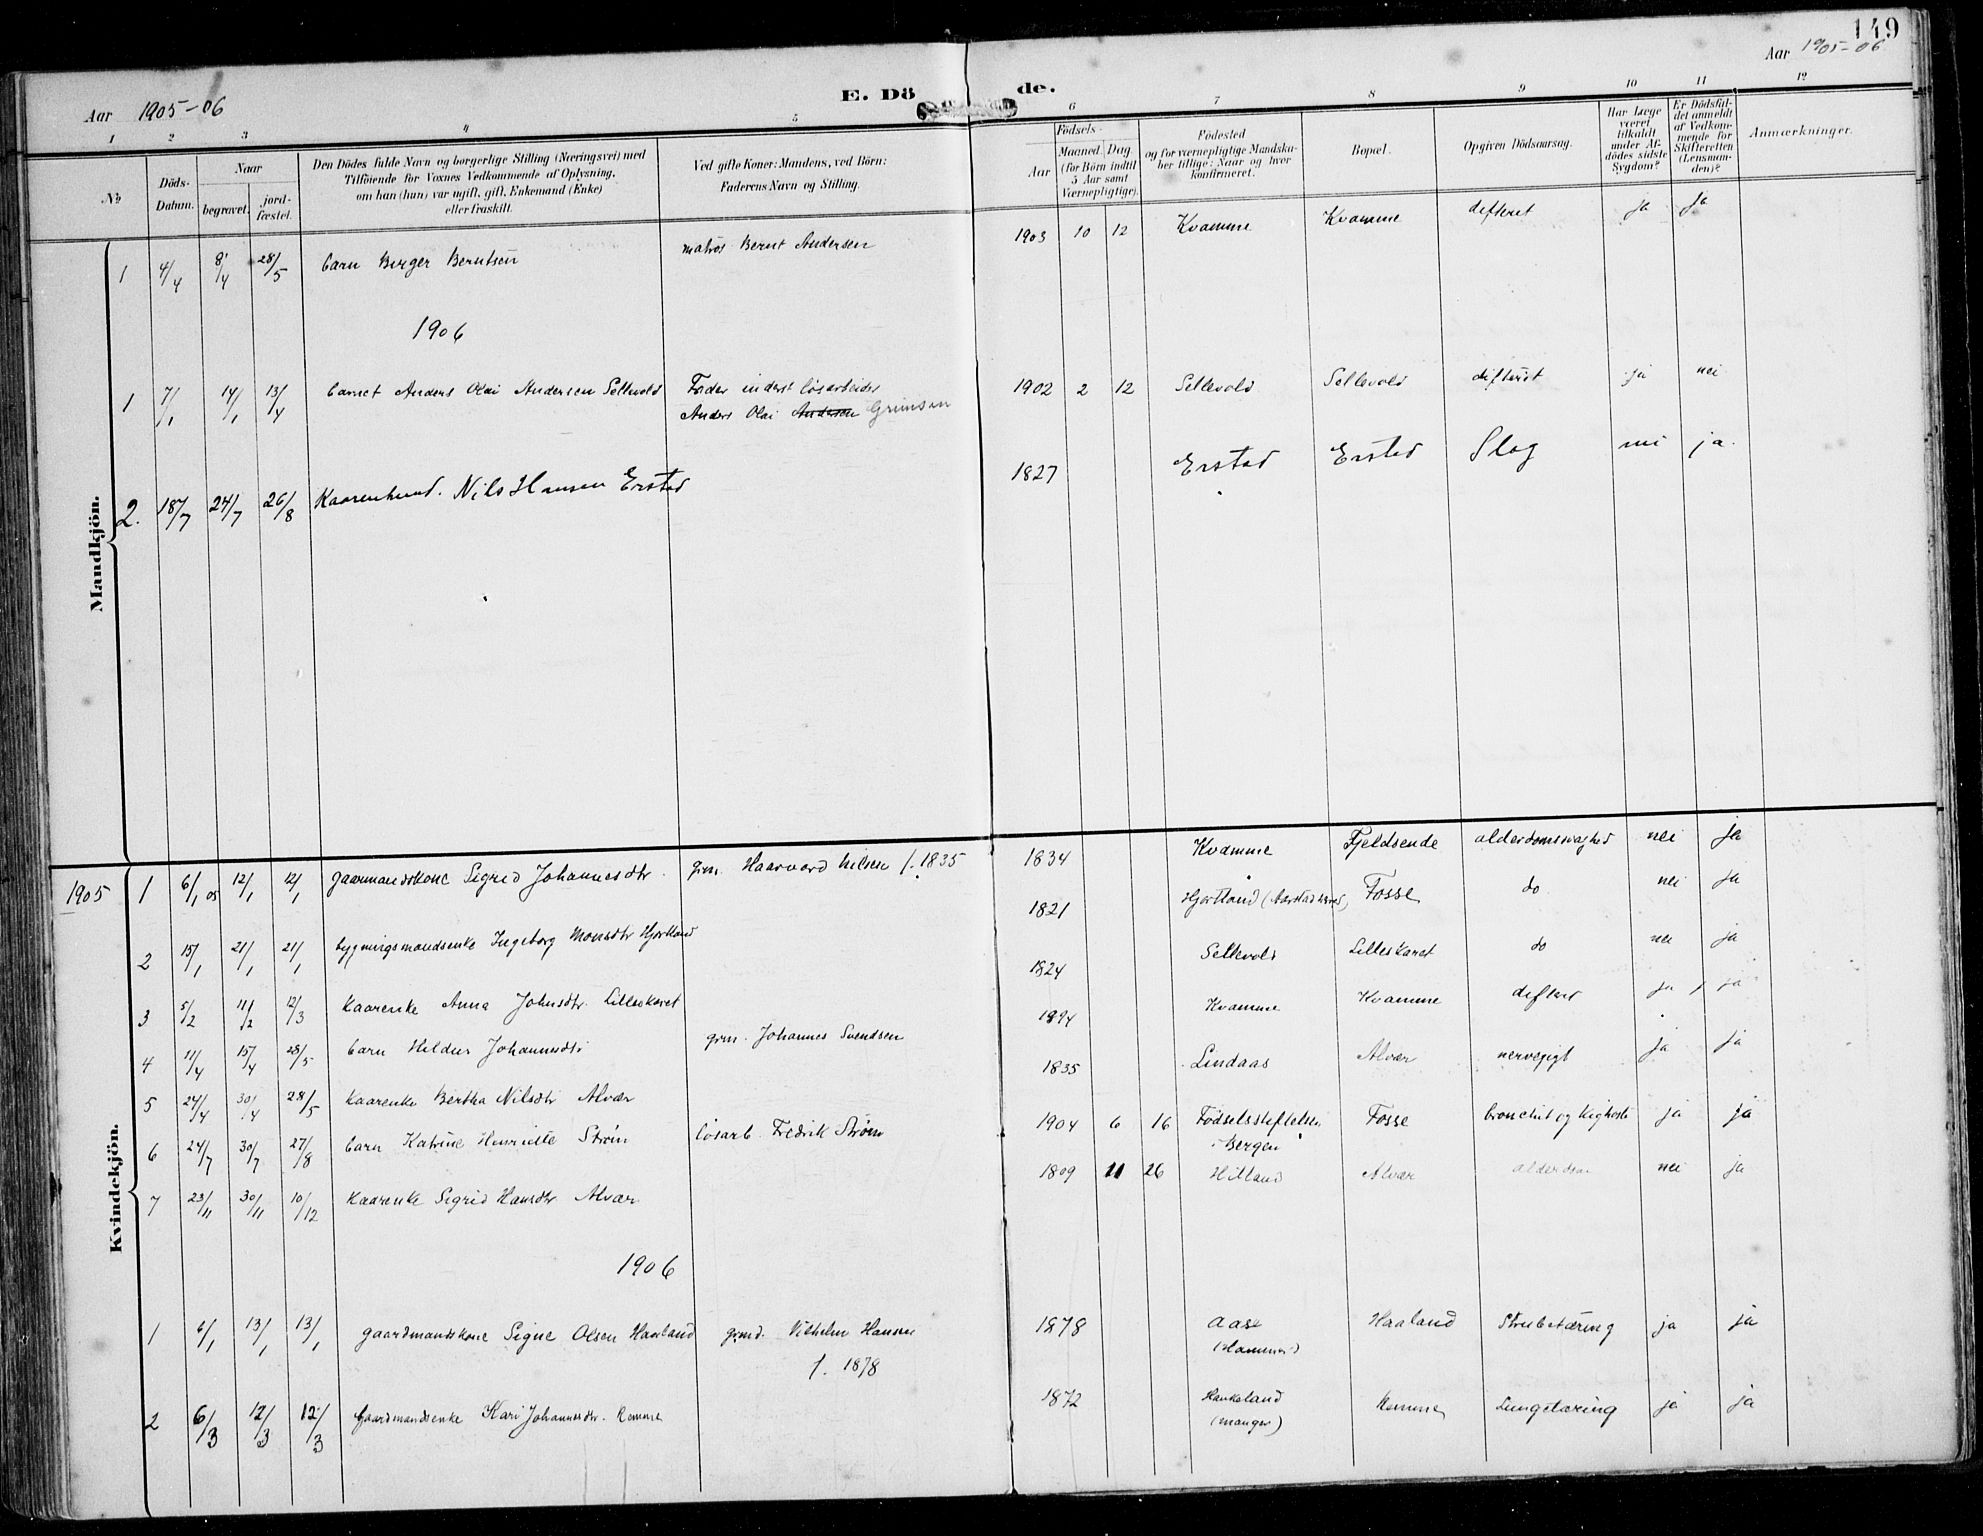 149
Aar 1905-06
E. Dö de.
Aar 1905-06
1 2 3 4 5 6 7 8 9 10 11 12
№
Döds-Datum.
Naar
begravet.
jord-fæstet.
Den Dödes fulde Navn og borgerlige Stilling (Næringsvei) med
Tilföiende for Voxnes Vedkommende af Oplysning,
om han (hun) var ugift, gift, Enkemand (Enke)
eller fraskilt.
Ved gifte Koner: Mandens, ved Börn:
Faderens Navn og Stilling.
Födsels-
Aar
Maaned. Dag
(for Börn indtil
5 Aar samt
Værnepligtige).
Födested
og for værnepligtige Mandska-
ber tillige: Naar og hvor
konfirmeret.
Bopæl.
Opgiven Dödsaarsag.
Har Læge
været
tilkaldt
under Af-
dödes sidste
Sygdom?
Er Dödsfal-
det anmeldt
af Vedkom-
mende for
Skifteretten
(Lensman-
den)?
Anmærkninger.
Mandkjön.
1 4/4 8/4 28/5 barn Birger Berntsen matros Bernt Andersen 1903 10 12 Kvamme Kvamme difterit ja ja
1906
1 7/1 14/1 13/4 barnet Anders Olai Andersen Sellevold Fader inderst løsarbeider 1902 2 12 Sellevold Sellevold difterit ja nei
Anders Olai Andersen Grimsen
2. 18/7 24/7 26/8 Kaarenhund. Nils Hansen Erstad 1827 Erstad Erstad Slag nei ja.
Kvindekjön.
1905 1 6/1 05 12/1 12/1 gaarmandskone Sigrid Johannesdtr. grm. Haarvard Nilsen f. 1835 1834 Kvamme Fjeldsende alderdomssvaghed nei ja
2 15/1 21/1 21/1 bygningsmandsenke Ingeborg Monsdtr Hjortland 1821 Hjortland Fosse do nei ja
3 5/2 11/2 12/3 Kaarenke Anna Johnsdtr. Lilleskaret 1824 Sellevold Lilleskaret do nei ja
4 11/4 15/4 28/5 barn Hildur Johannesdtr grm. Johannes Svendsen 1894 Kvamme Kvamme difterit ja ja
5 24/4 30/4 28/5 Kaarenke Bertha Nilsdtr Alvær 1835 Lindaas Alvær nervegigt ja ja
6 24/7 30/7 27/8 barn Katrine Henriette Strøm løsarb. Fredrik Strøm 1904 6 16 Fødselsstiftelsen Fosse bronchit og kighoste ja ja
i Bergen
7 23/11 30/11 10/12 Kaarenke Sigrid Hansdtr Alvær 1809 11 26 Hilland Alvær alderdom nei ja
1906
1 6/1 13/1 13/1 gaardmandskone Signe Olsen Haaland grmd. Vilhelm Hansen 1878 Aase Haaland Strubetæring ja ja
f. 1878 (Hammer)
2 6/3 12/3 12/3 Gaardmandsenke Kari Johannesdtr. Remme 1872 Haukeland Remme Lungetæring ja ja
(Manger)